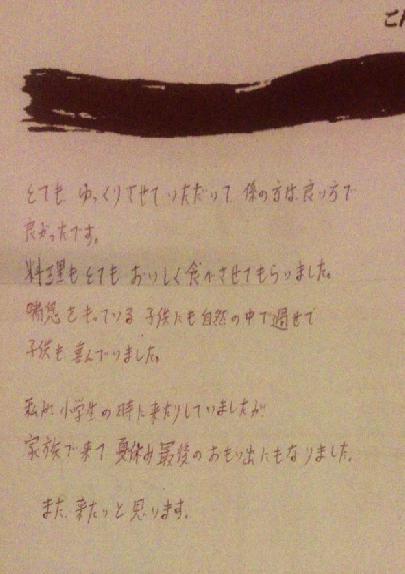 とても ゆっくりさせていただいて 係の方は 良い方で
良かったです。
料理もとても おいしく食べさせてもらいました。
喘息をもっている 子供にも自然の中で過せて
子供も 喜んでいました。
私が 小学生の時に来たりしていましたが
家族で来て 夏休み最後のおもい出にもなりました。
また、来たいと 思います。